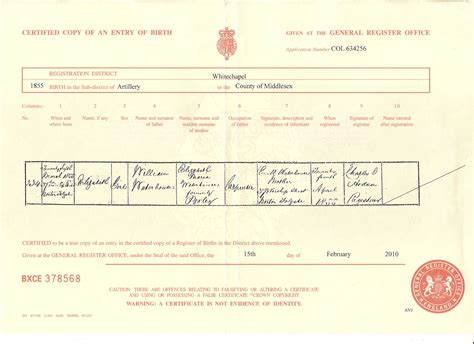 CERTIFIED COPY OF AN ENTRY OF BIRTH
GIVEN AT THE GENERAL REGISTER OFFICE
Application Number COL 634256
REGISTRATION DISTRICT Whitechapel
1855 BIRTH in the Sub-district of Artillery in the County of Middlesex
Columns:- 1 2 3 4 5 6 7 8 9 10
No. When and where born Name, if any Sex Name and surname of father Name, surname and maiden surname of mother Occupation of father Signature, description and residence of informant When registered Signature of registrar Name entered after registration
Elizabeth Girl William Waterhouse Elizabeth Maria Waterhouse formerly Carpenter Mother April Charles Registrar
CERTIFIED to be a true copy of an entry in the certified copy of a Register of Births in the District above mentioned.
Given at the GENERAL REGISTER OFFICE, under the Seal of the said Office, the 15th day of February 2010
BXCE 378568
CAUTION: THERE ARE OFFENCES RELATING TO FALSIFYING OR ALTERING A CERTIFICATE
AND USING OR POSSESSING A FALSE CERTIFICATE ©CROWN COPYRIGHT
WARNING: A CERTIFICATE IS NOT EVIDENCE OF IDENTITY.
GENERAL REGISTER OFFICE
ENGLAND